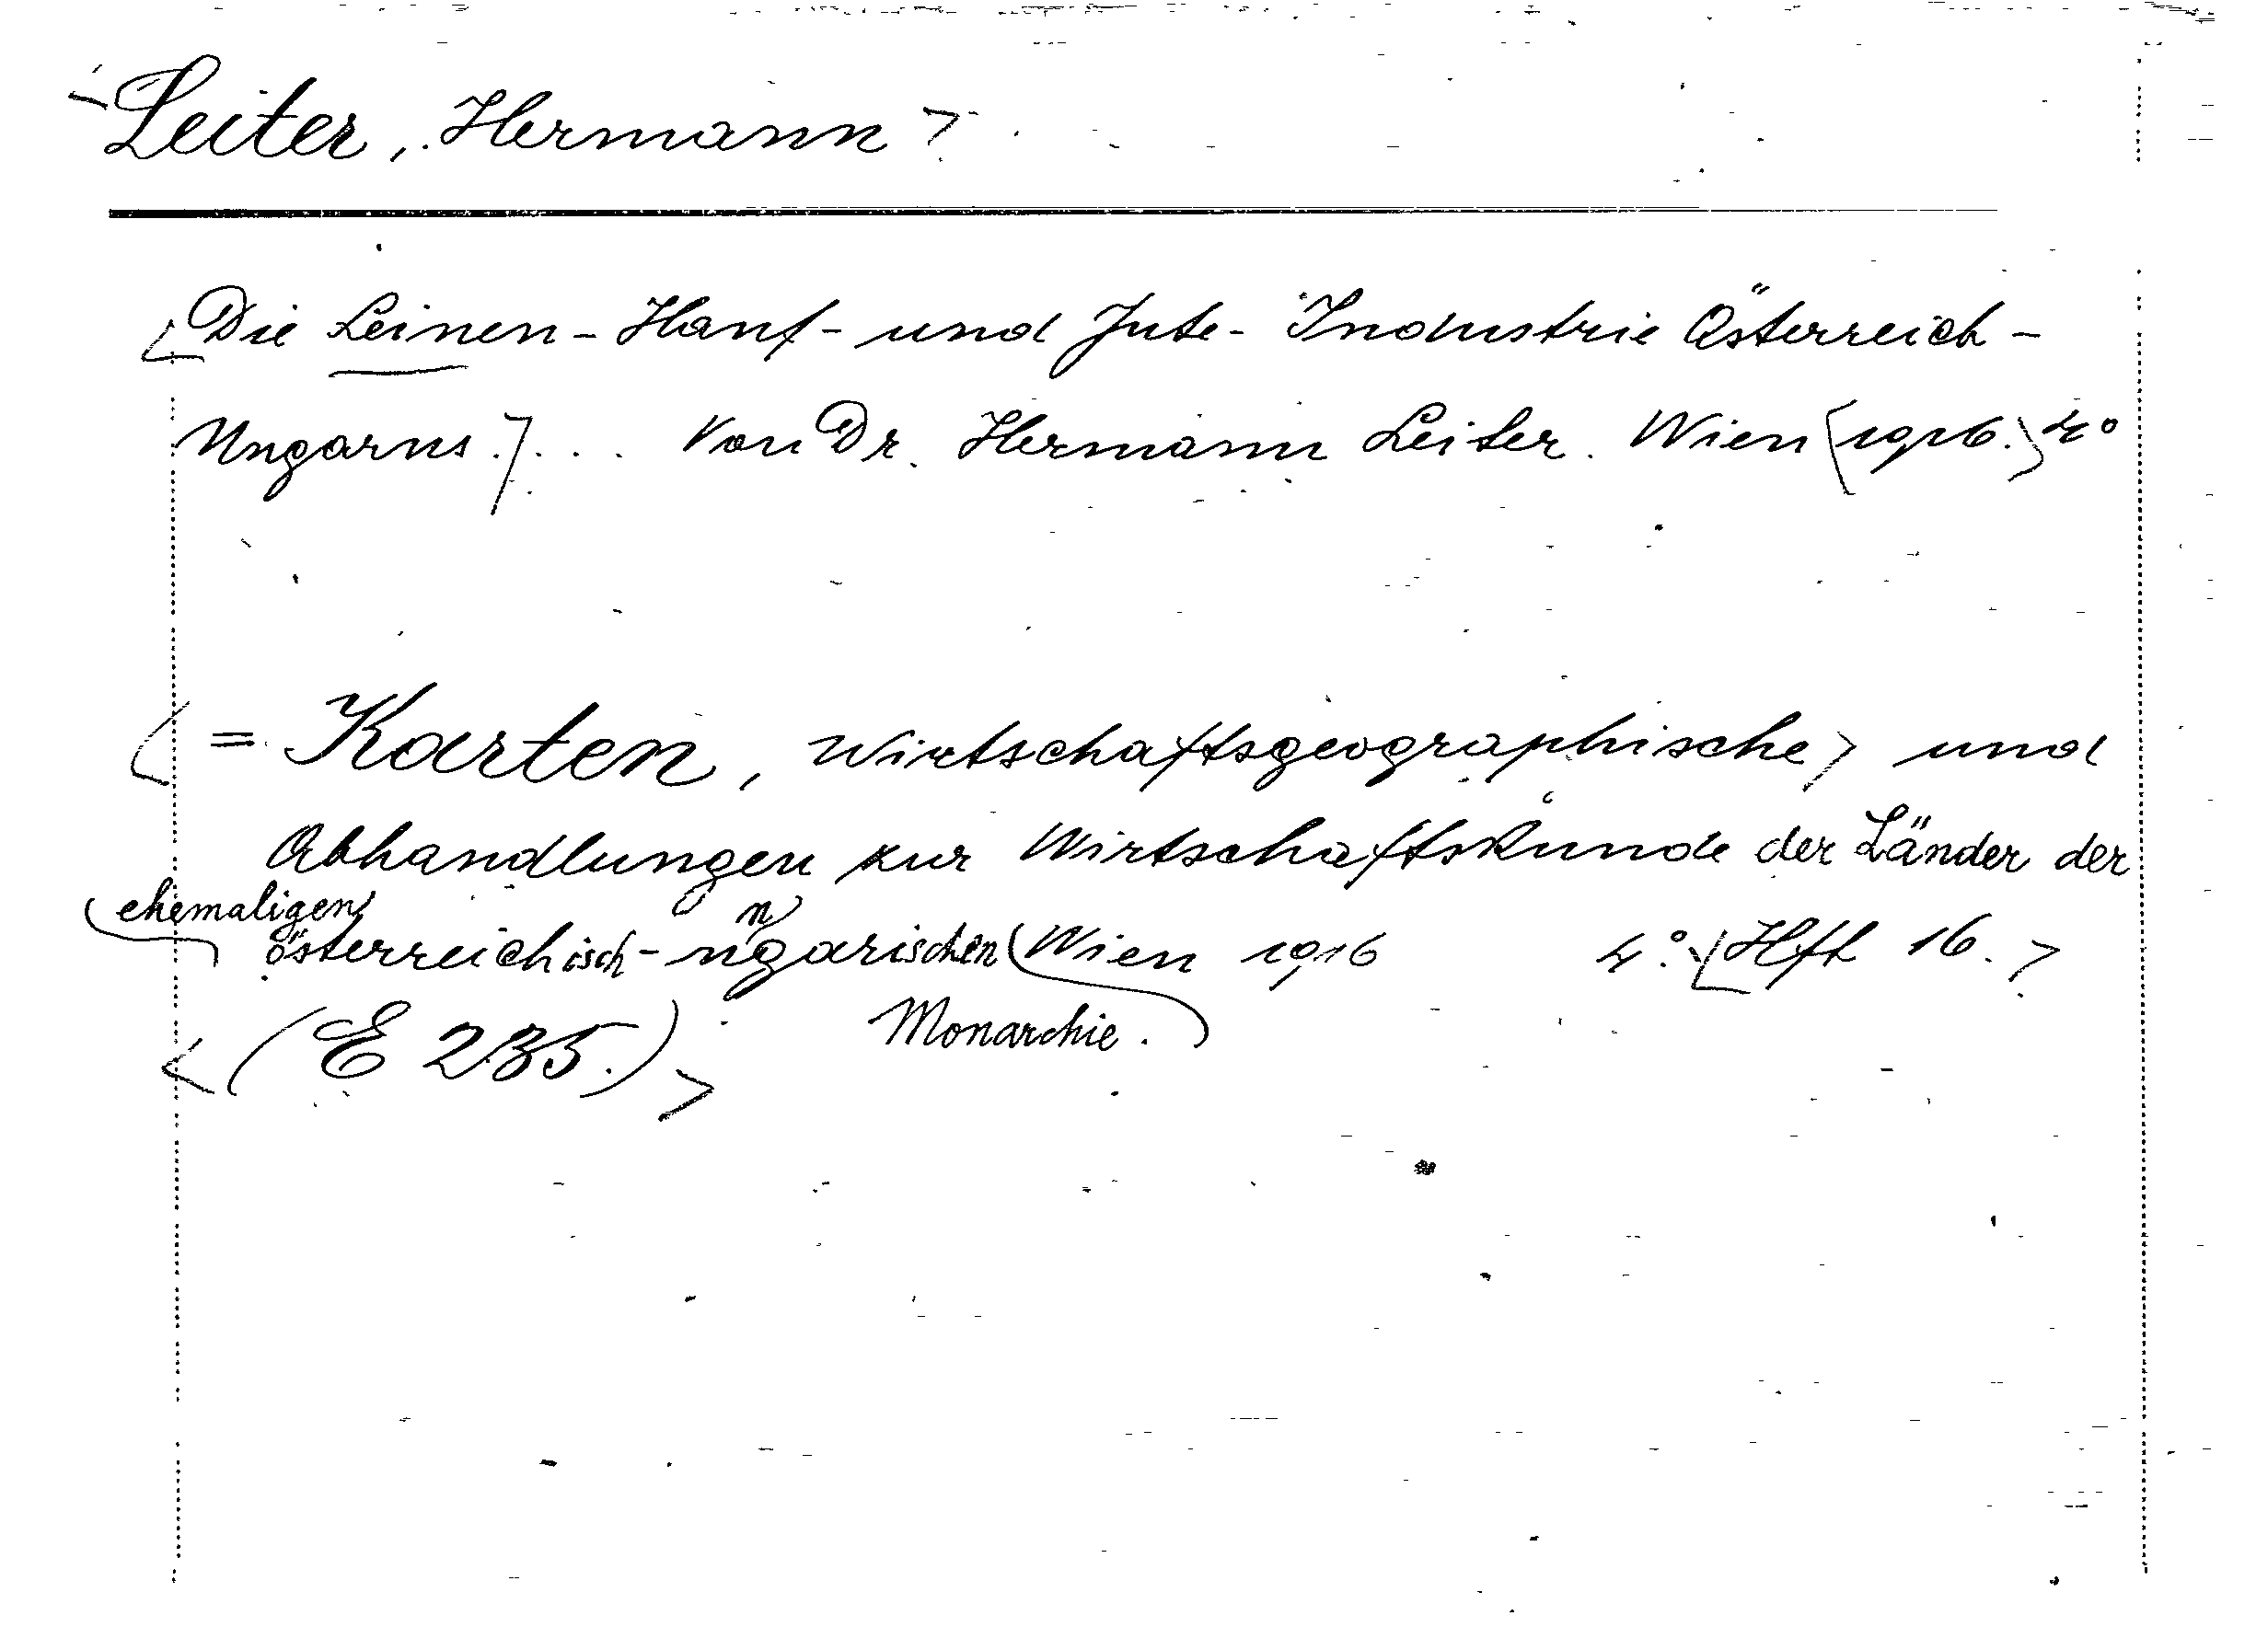 <Leiter, Hermann>
<Die Leinen-Hanf- und Jute-Industrie Österreich-
Ungarns.> ... Von Dr. Hermann Leiter. Wien <1916.> 4°
<= Karten, wirtschaftsgeographische> und
Abhandlungen zur Wirtschaftskunde der Länder der
ehemaligen
österreichisch-ungarischen Wien 1916 4°. <Hft 16.>
Monarchie.
<(E 235.)>